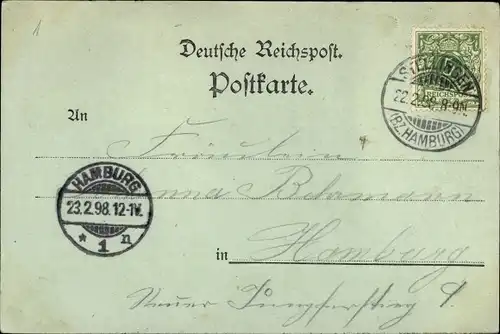 1
Deutsche Reichspost.
Postkarte.
STELLINGEN
22.2.98. 8-9N.
(BZ. HAMBURG)
REICHSPOST
An
Fräulein
Anna Behrmann
HAMBURG
23.2.98.12-1V.
* 1 n
in Hamburg
Neuer Jungfernstieg